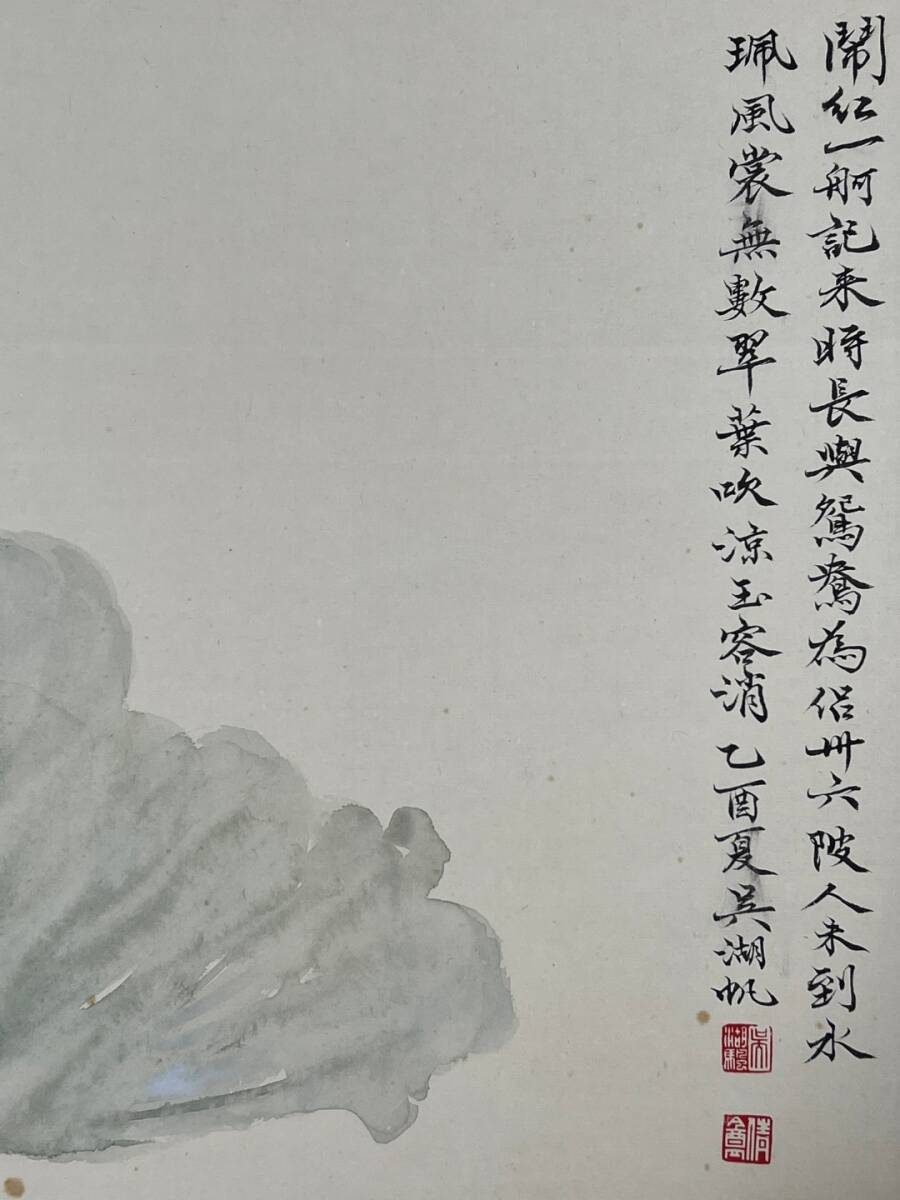 鬧紅一舸記来時長與鴛鴦為侶卅六陂人未到水
珮風裳無數翠葉吹涼玉容消乙酉夏吳湖帆
吳湖驄
倩盦